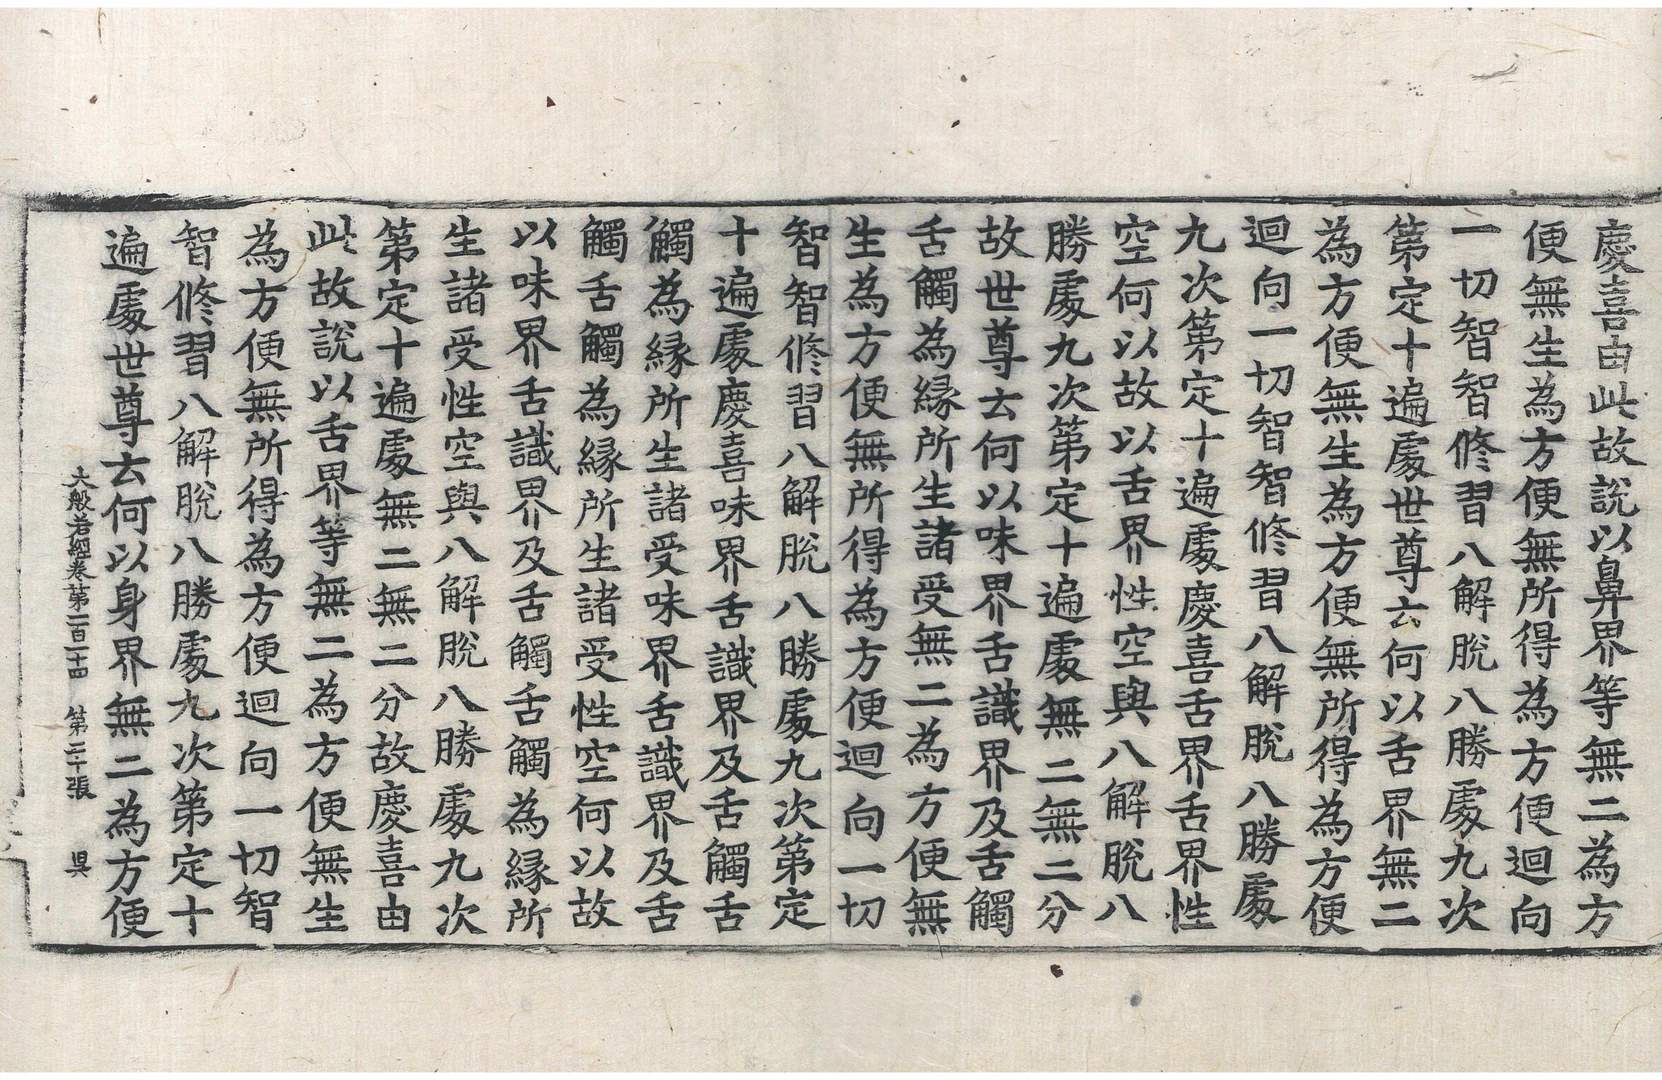 慶喜由此故說以鼻界等無二為方
便無生為方便無所得為方便迴向
一切智智修習八解脫八勝處九次
第定十遍處世尊云何以舌界無二
為方便無生為方便無所得為方便
迴向一切智智修習八解脫八勝處
九次第定十遍處慶喜舌界舌界性
空何以故以舌界性空與八解脫八
勝處九次第定十遍處無二無二分
故世尊云何以味界舌識界及舌觸
舌觸為緣所生諸受無二為方便無
生為方便無所得為方便迴向一切
智智修習八解脫八勝處九次第定
十遍處慶喜味界舌識界及舌觸舌
觸為緣所生諸受味界舌識界及舌
觸舌觸為緣所生諸受性空何以故
以味界舌識界及舌觸舌觸為緣所
生諸受性空與八解脫八勝處九次
第定十遍處無二無二分故慶喜由
此故說以舌界等無二為方便無生
為方便無所得為方便迴向一切智
智修習八解脫八勝處九次第定十
遍處世尊云何以身界無二為方便
大般若經卷第一百一十四 第二十張 昃